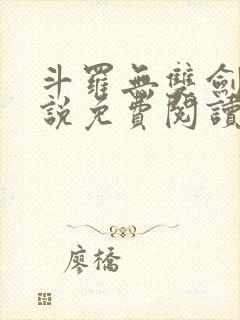 斗羅無雙劍
說免費閱讀
廖橋